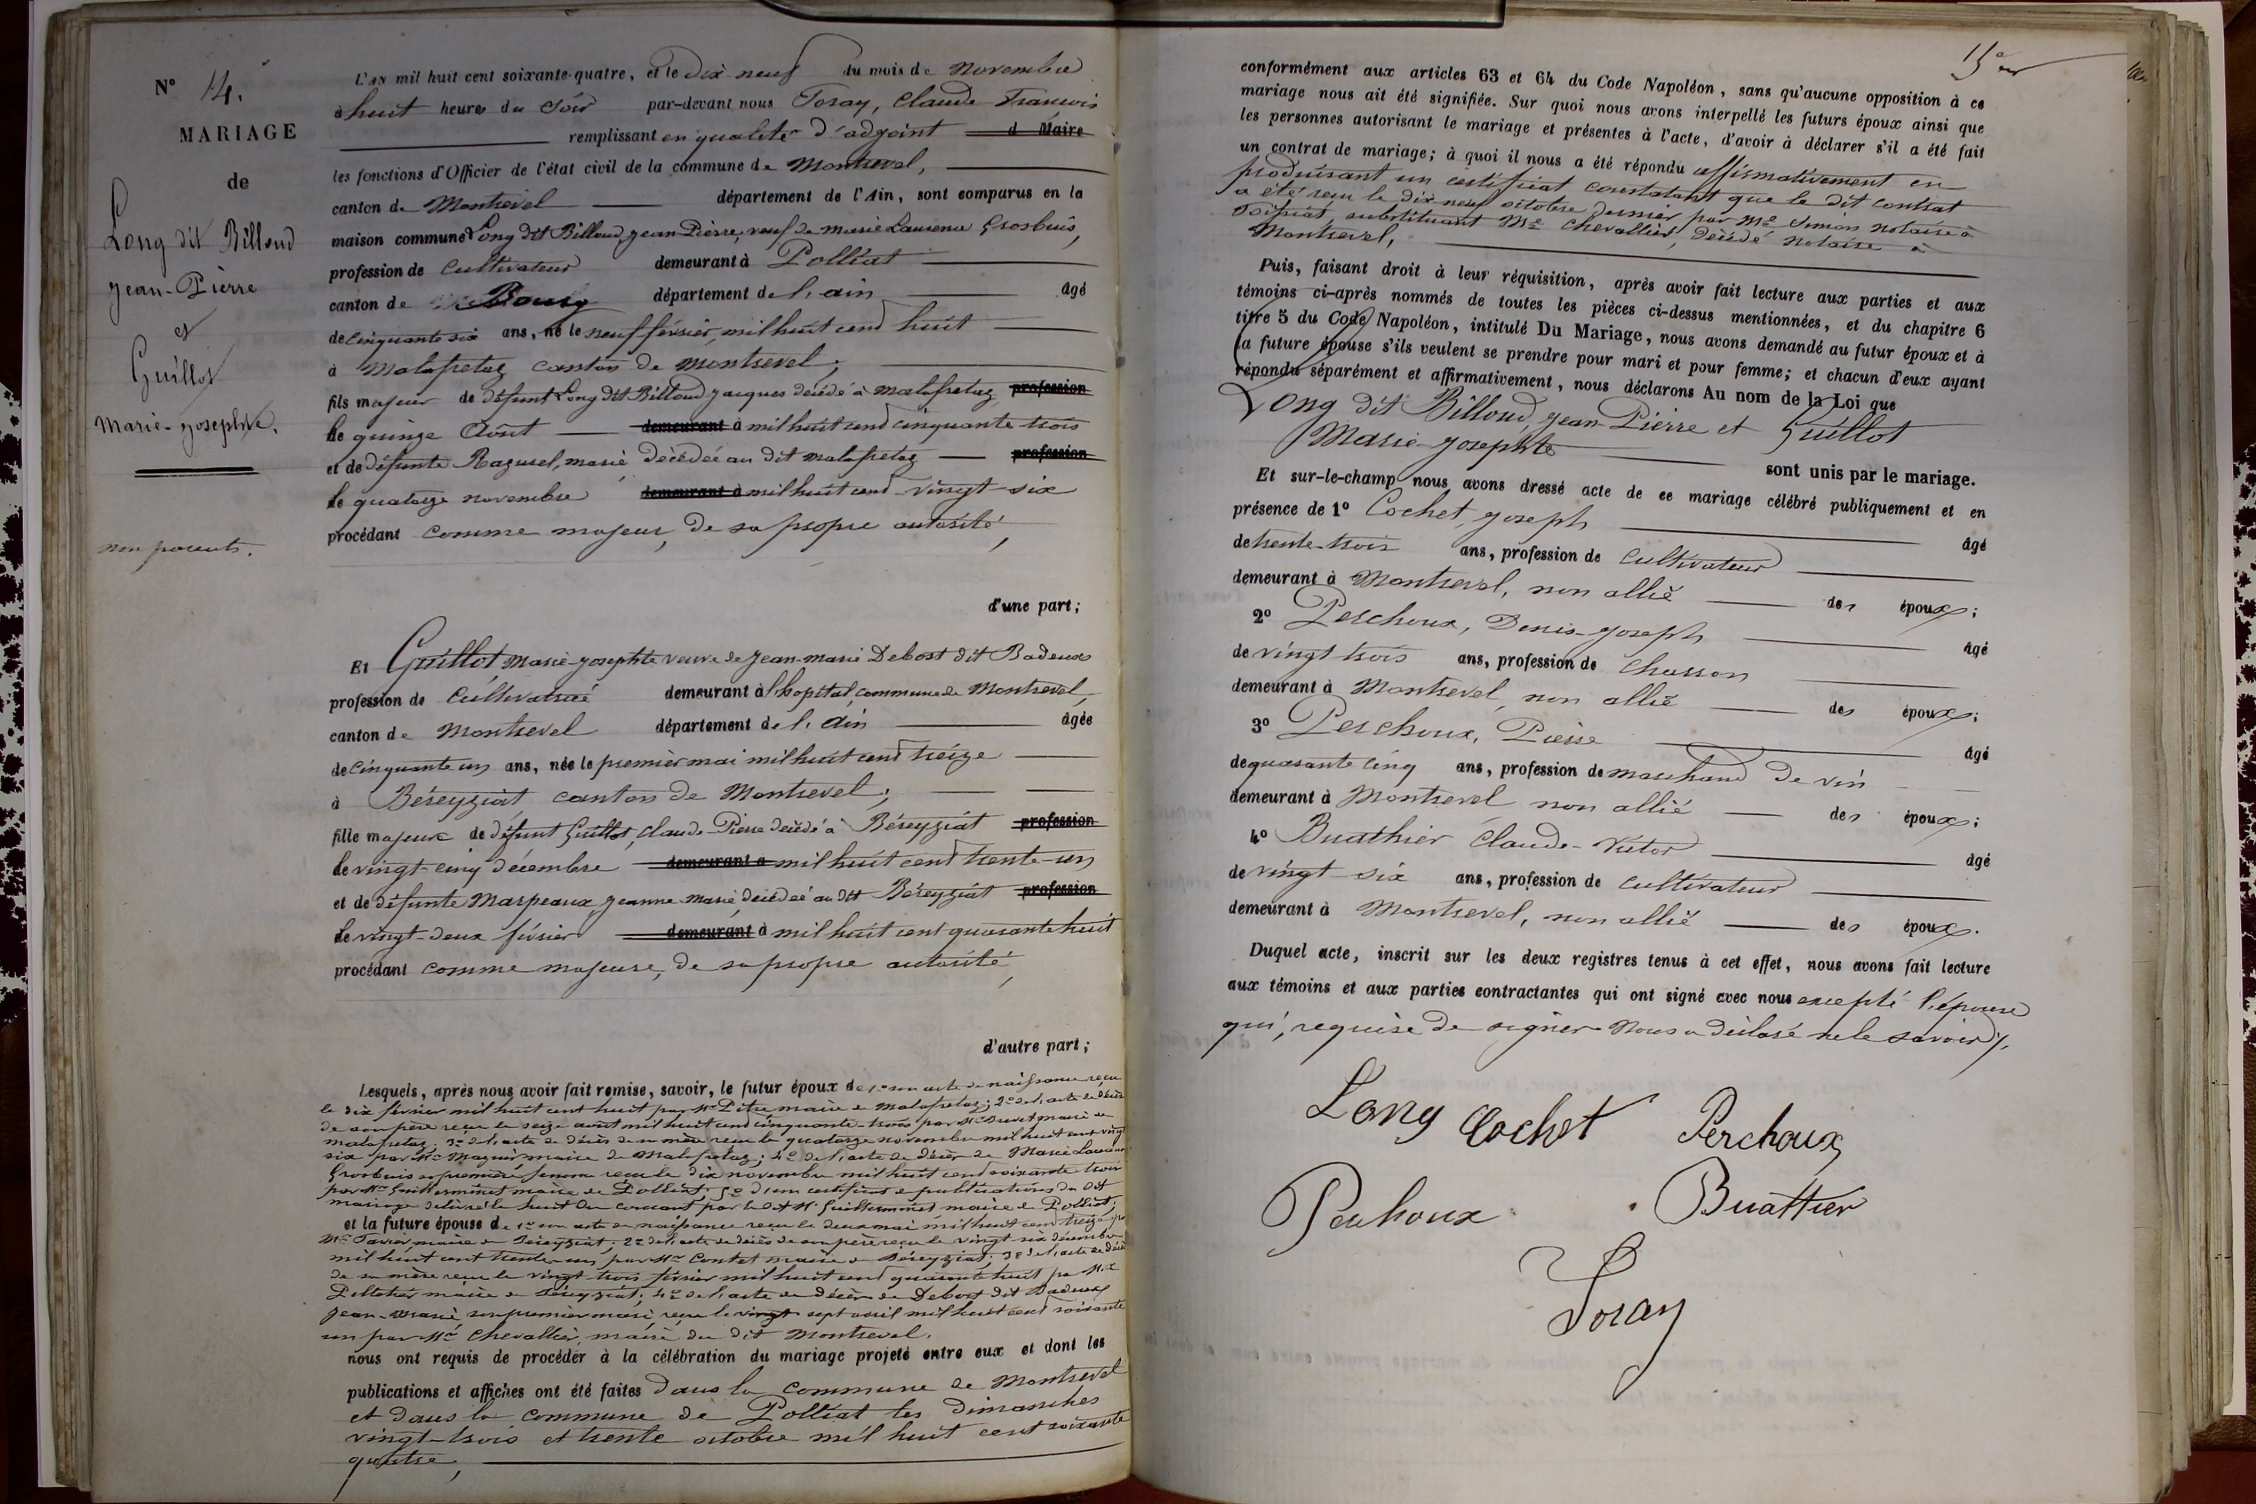 N° 14.
MARIAGE
de
Long dit Billoud
Jean-Pierre
et
Guillot
Marie-Josephte.
non parents.
L'AN mil huit cent soixante-quatre, et le dix neuf du mois de Novembre
à huit heures du soir par-devant nous Foray, Claude François
remplissant en qualité d'adjoint d Maire
les fonctions d'Officier de l'état civil de la commune de Montrevel,
canton de Montrevel département de l'Ain, sont comparus en la
maison commune Long dit Billoud, Jean Pierre, veuf de Marie Laurence Grosbuis,
profession de Cultivateur demeurant à Polliat
canton de Bourg département de l'ain âgé
de cinquante six ans, né le neuf février mil huit cent huit
à Malafretaz canton de Montrevel;
fils majeur de défunt Long dit Billoud Jacques décédé à Malafretaz profession
le quinze Août demeurant à mil huit cent cinquante trois
et de défunte Razurel, Marie décédée au dit Malafretaz profession
le quatorze novembre demeurant à mil huit cent vingt-six
procédant comme majeur, de sa propre autorité,
d'une part;
Et Guillot, Marie-Josephte veuve de Jean-Marie Debost dit Badoux
profession de Cultivatrice demeurant à l'hopital, commune de Montrevel,
canton de Montrevel département de l'Ain âgée
de cinquante un ans, née le premier mai mil huit cent treize
à Béreyziat canton de Montrevel;
fille majeure de défunt Guillot, Claude-Pierre décédé à Béreyziat profession
le vingt-cinq décembre demeurant à mil huit cent trente-un
et de défunte Marpeaux Jeanne Marie, décédée au dit Béreyziat profession
le vingt-deux février demeurant à mil huit cent quarante huit
procédant comme majeure, de sa propre autorité,
d'autre part;
Lesquels, après nous avoir fait remise, savoir, le futur époux de 1° son acte de naissance reçu
le dix février mil huit cent huit par Mr Pitre maire de Malafretaz; 2° de l'acte de décès
de son père reçu le seize août mil huit cent cinquante-trois par Mr maire de
Malafretaz; 3° de l'acte de décès de sa mère reçu le quatorze novembre mil huit cent vingt
six par Mr maire de Malafretaz; 4° de l'acte de décès de Marie Laurence
Grosbuis sa première femme reçu le dix novembre mil huit cent soixante trois
par Mr Guillerminet maire de Polliat; 5° d'un certificat de publications du dit
mariage délivré le huit du courant par le dit Mr Guillerminet maire de Polliat;
et la future épouse de 1° son acte de naissance reçu le deux mai mil huit cent treize par
Mr maire de Béreyziat; 2° de l'acte de décès de son père reçu le vingt six décembre
mil huit cent trente-un par Mr Contet maire de Béreyziat; 3° de l'acte de décès
de sa mère reçu le vingt-trois février mil huit cent quarante huit par Mr
maire de Béreyziat; 4° de l'acte de décès de Debost dit Badoux
Jean-Marie, son premier mari, reçu le vingt sept avril mil huit cent soixante
un par Mr Chevallier, maire du dit Montrevel.
nous ont requis de procéder à la célébration du mariage projeté entre eux et dont les
publications et affiches ont été faites dans la commune de Montrevel
et dans la commune de Polliat les dimanches
vingt-trois et trente octobre mil huit cent soixante
quatre,
conformément aux articles 63 et 64 du Code Napoléon, sans qu'aucune opposition à ce
mariage nous ait été signifiée. Sur quoi nous avons interpellé les futurs époux ainsi que
les personnes autorisant le mariage et présentes à l'acte, d'avoir à déclarer s'il a été fait
un contrat de mariage; à quoi il nous a été répondu affirmativement en
produisant un certificat constatant que le dit contrat
a été reçu le dix neuf octobre dernier par Me Simon notaire à
Foissiat, substituant Me Chevallier, décédé notaire à
Montrevel,
Puis, faisant droit à leur réquisition, après avoir fait lecture aux parties et aux
témoins ci-après nommés de toutes les pièces ci-dessus mentionnées, et du chapitre 6
titre 5 du Code Napoléon, intitulé Du Mariage, nous avons demandé au futur époux et à
la future épouse s'ils veulent se prendre pour mari et pour femme; et chacun d'eux ayant
répondu séparément et affirmativement, nous déclarons Au nom de la Loi que
Long dit Billoud, Jean-Pierre et Guillot
Marie-Josephte
sont unis par le mariage.
Et sur-le-champ nous avons dressé acte de ce mariage célébré publiquement et en
présence de 1° Cochet, Joseph âgé
de trente-trois ans, profession de cultivateur
demeurant à Montrevel, non allié des époux;
2° Perchoux, Denis-Joseph âgé
de vingt trois ans, profession de Charron
demeurant à Montrevel, non allié des époux;
3° Perchoux, Pierre âgé
de quarante cinq ans, profession de marchand de vin
demeurant à Montrevel non allié des époux;
4° Buathier Claude-Victor âgé
de vingt-six ans, profession de cultivateur
demeurant à Montrevel, non allié des époux.
Duquel acte, inscrit sur les deux registres tenus à cet effet, nous avons fait lecture
aux témoins et aux parties contractantes qui ont signé avec nous excepté l'épouse
qui, requise de signer nous a déclaré ne le savoir.
Long Cochet Perchoux
Perchoux Buattier
Foray